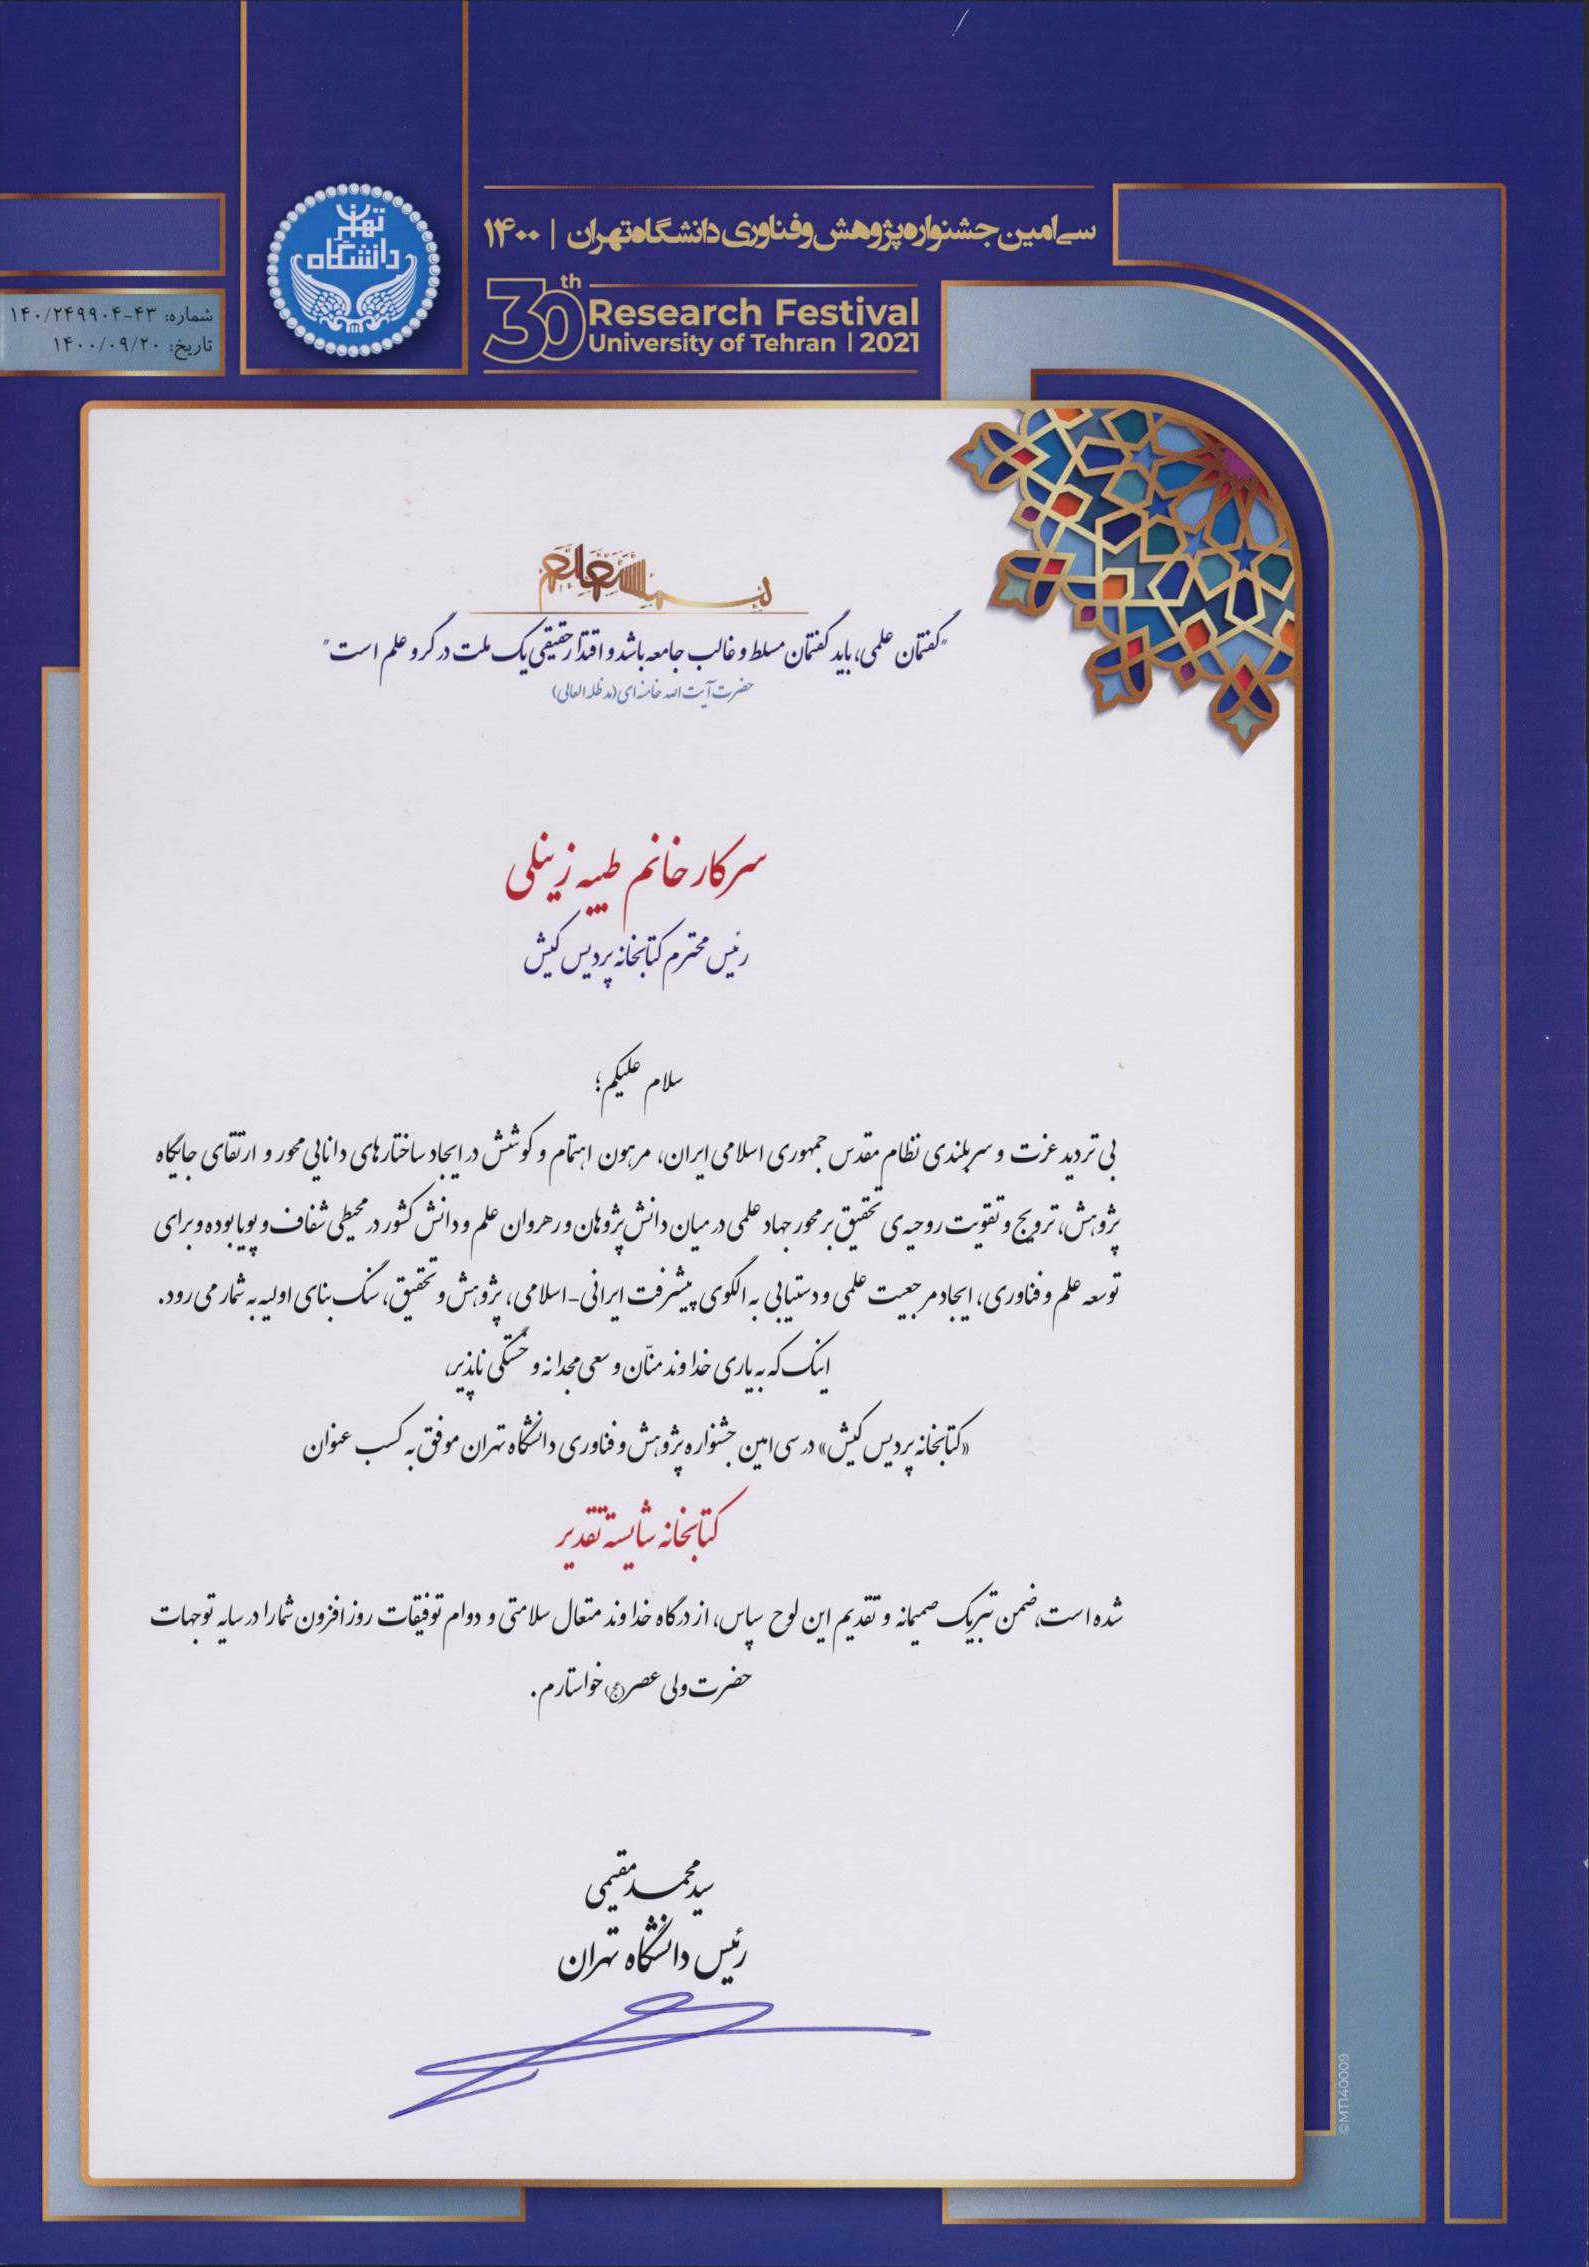 سی‌امین جشنواره پژوهش و فناوری دانشگاه تهران | ۱۴۰۰
30th Research Festival
University of Tehran | 2021
تهران
دانشگاه
شماره: ۱۴۰/۲۴۹۹۰۴-۴۳
تاریخ: ۱۴۰۰/۰۹/۲۰
"گفتمان علمی، باید گفتمان مسلط و غالب جامعه باشد و اقتدار حقیقی یک ملت در گرو علم است"
حضرت آیت الله خامنه ای (مد ظله العالی)
سرکار خانم طیبه زینلی
رئیس محترم کتابخانه پردیس کیش
سلام علیکم؛
بی تردید عزت و سربلندی نظام مقدس جمهوری اسلامی ایران، مرهون اهتمام و کوشش در ایجاد ساختارهای دانایی محور و ارتقای جایگاه
پژوهش، ترویج و تقویت روحیه ی تحقیق بر محور جهاد علمی در میان دانش پژوهان و رهروان علم و دانش کشور در محیطی شفاف و پویا بوده و برای
توسعه علم و فناوری، ایجاد مرجعیت علمی و دستیابی به الگوی پیشرفت ایرانی-اسلامی، پژوهش و تحقیق، سنگ بنای اولیه به شمار می رود.
اینک که به یاری خداوند منّان و سعی مجدانه و خستگی ناپذیر،
«کتابخانه پردیس کیش» در سی امین جشنواره پژوهش و فناوری دانشگاه تهران موفق به کسب عنوان
کتابخانه شایسته تقدیر
شده است، ضمن تبریک صمیمانه و تقدیم این لوح سپاس، از درگاه خداوند متعال سلامتی و دوام توفیقات روزافزون شما را در سایه توجهات
حضرت ولی عصر(عج) خواستارم.
سید محمد مقیمی
رئیس دانشگاه تهران
©MT140009